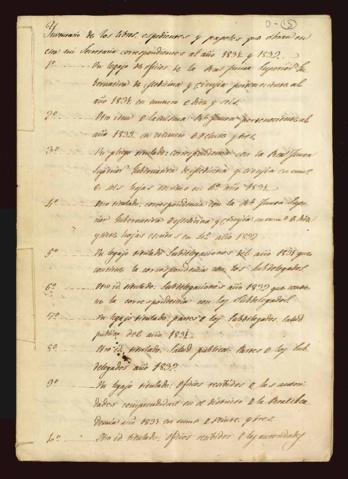 Inventario de los libros, espedientes y papeles que obran en
esta mi Secretaria correspondientes al año 1831 y 1832.
1º Un legajo de oficios de la Real Junta Superior Gu-
bernativa de Medicina y Cirugia pertenecientes al
año 1831 en numero de diez y seis.
2º Un idem de la misma Rl Junta pertenecientes al
año 1832 en numero de treinta y tres.
3º Un pliego titulado: correspondencia con la Real Junta
Superior Gubernativa de Medicina y Cirugia en
de seis hojas año 1831.
4º Un id titulado: correspondencia con la Rl Junta Supe-
rior Gubernativa de Medicina y Cirugia de diez
y seis hojas año 1832
5º Un legajo titulado Subdelegaciones del año 1831 que
contiene la correspondencia con los Subdelegados.
6º Un id titulado Subdelegaciones año 1832 que contie-
ne la correspondencia con los Subdelegados.
7º Un legajo titulado partes de los Subdelegados. Salud
publica del año 1831.
8º Un id titulado. Salud publica. Partes de los Sub-
delegados año 1832
9º Un legajo titulado: Oficios recibidos de las autori-
dades comprendidas en el distrito de la Real Aca-
demia año 1831 en numo de y tres.
10º Un id titulado: oficios recibidos de las autoridades